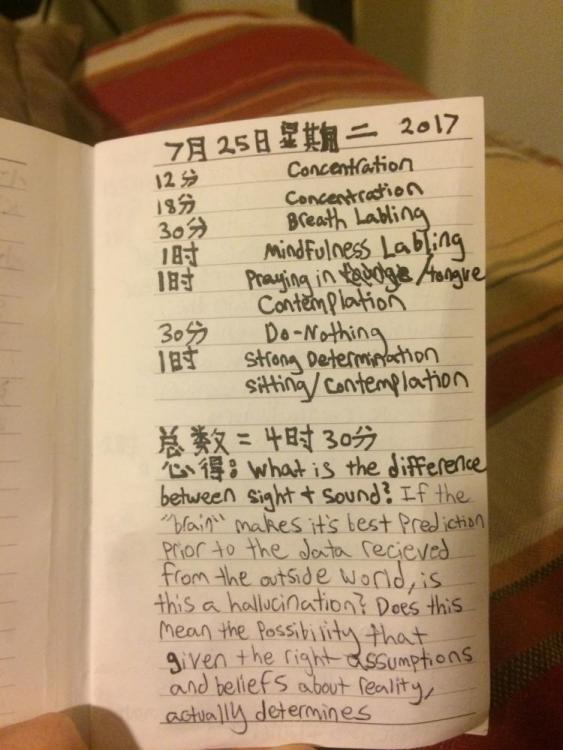 7月25日 星期二 2017
12分 Concentration
18分 Concentration
30分 Breath Labling
1时 Mindfulness Labling
1时 Praying in /tongue
Contemplation
30分 Do-Nothing
1时 Strong Determination
sitting/contemplation
总数 = 4时30分
心得: What is the difference
between sight + sound? If the
"brain" makes it's best Prediction
prior to the data recieved
from the outside world, is
this a hallucination? Does this
mean the possibility that
given the right assumptions
and beliefs about reality,
actually determines